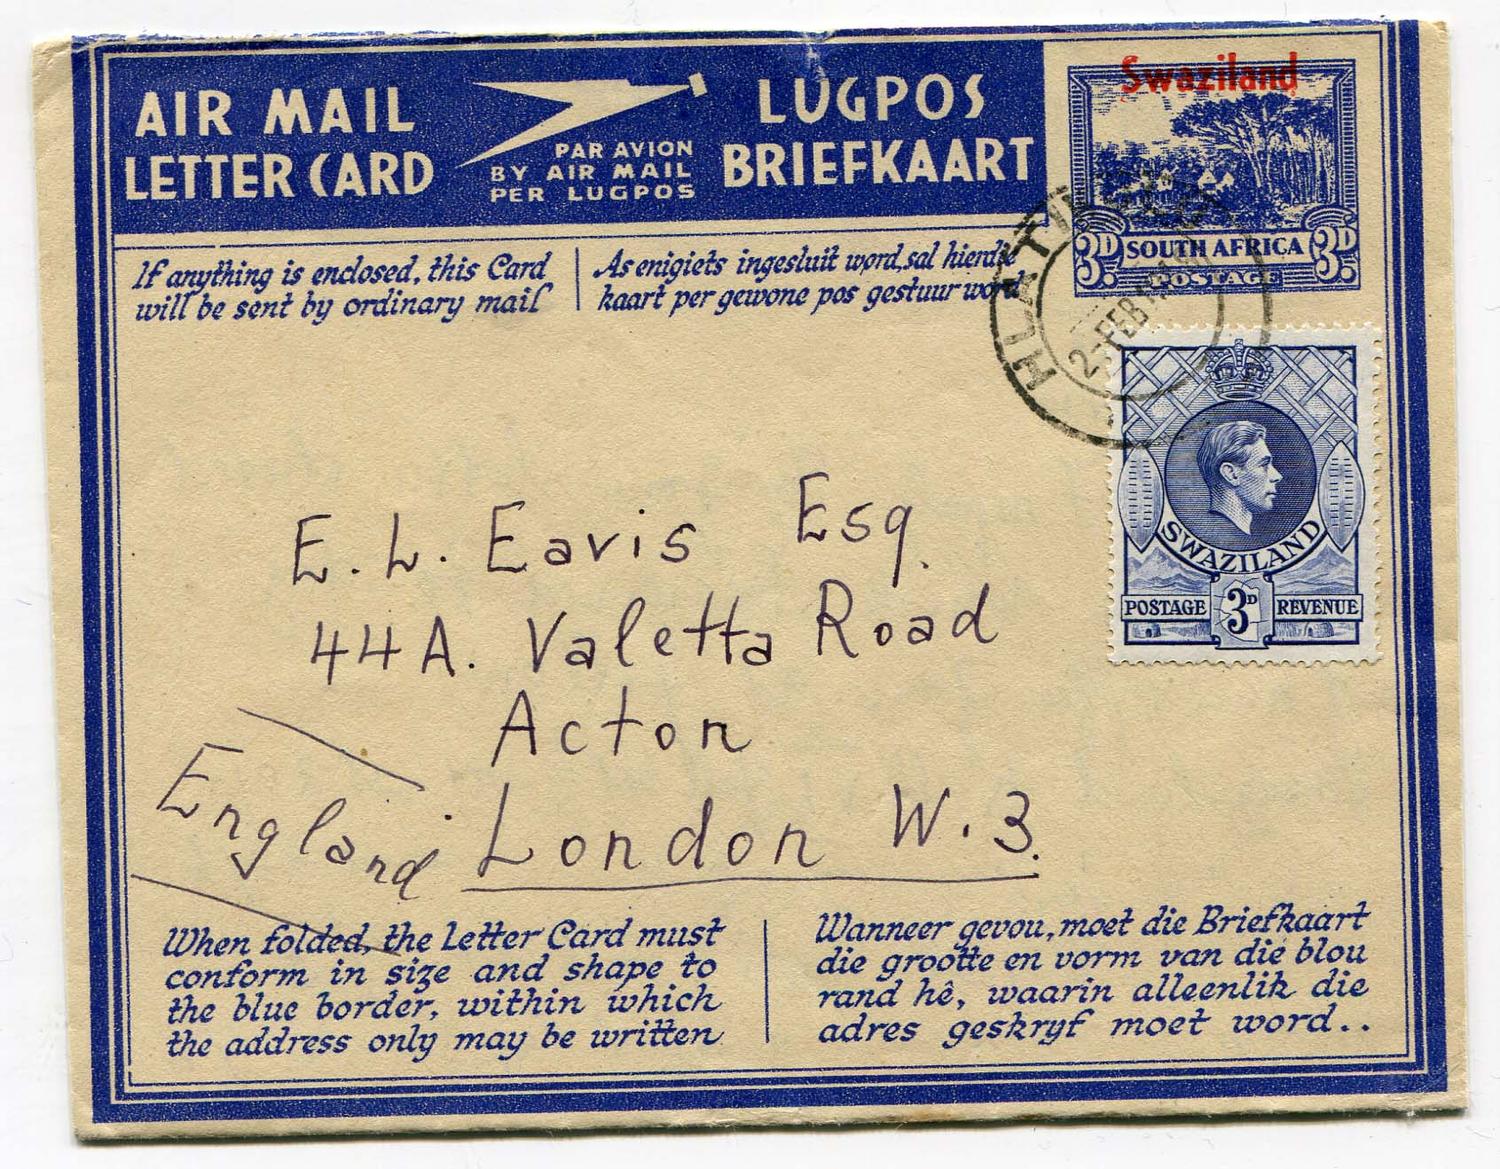 AIR MAIL
LETTER CARD
PAR AVION
BY AIR MAIL
PER LUGPOS
LUGPOS
BRIEFKAART
Swaziland
3D SOUTH AFRICA 3D
POSTAGE
If anything is enclosed, this Card
will be sent by ordinary mail
As enigiets ingesluit word, sal hierdie
kaart per gewone pos gestuur word
2-FEB
SWAZILAND
POSTAGE 3D REVENUE
E. L. Eavis Esq.
44A. Valetta Road
Acton
London W.3.
England
When folded, the Letter Card must
conform in size and shape to
the blue border, within which
the address only may be written
Wanneer gevou, moet die Briefkaart
die grootte en vorm van dié blou
rand hê, waarin alleenlik die
adres geskryf moet word..